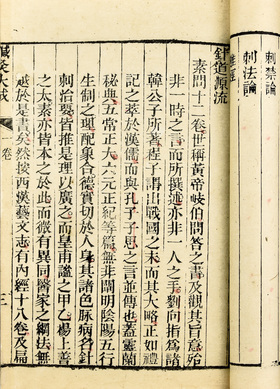 刺禁論
刺法論
難經
針道源流
素問十二卷世稱黃帝岐伯問答之書及觀其旨意殆
非一時之言而所撰述亦非一人之手劉向指為諸
韓公子所著程子謂出戰國之末而其大略正如禮
記之萃於漢儒而與孔子子思之言並傳也蓋靈蘭
秘典五常正大六元正紀等篇無非闡明陰陽五行
生制之理配象合德實切於人身其諸色脉病名針
刺治要皆推是理以廣之而皇甫謐之甲乙楊上善
之太素亦皆本之於此而微有異同醫家之綱法無
越於是書矣然按西漢藝文志有內經十八卷及扁
鍼灸大成 一卷 三